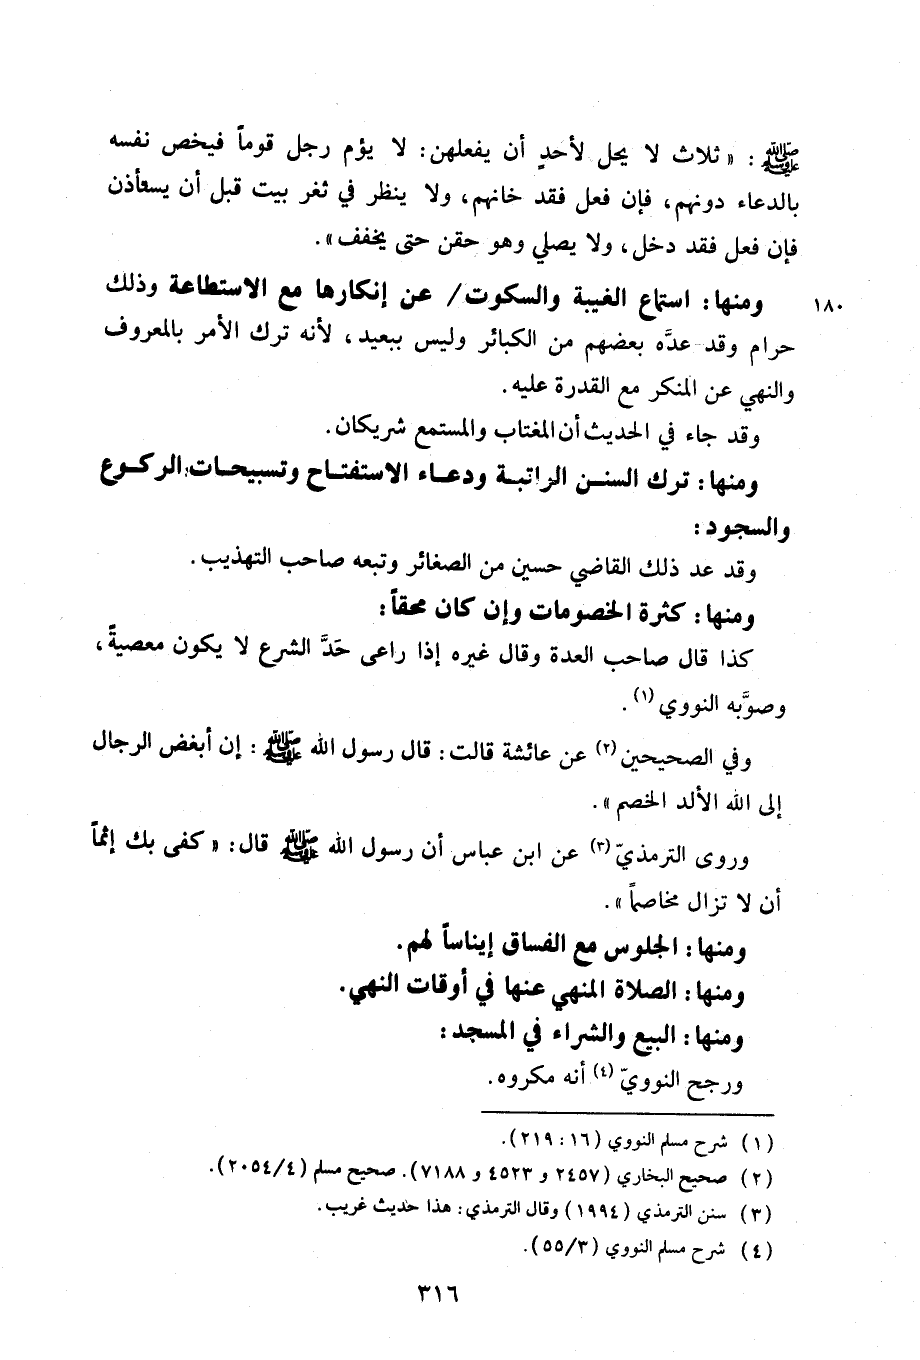 ﷺ : « ثلاث لا يحل لأحدٍ أن يفعلهن : لا يؤم رجل قوماً فيخص نفسه
بالدعاء دونهم ، فإن فعل فقد خانهم ، ولا ينظر في ثغر بيت قبل أن يستأذن
فإن فعل فقد دخل ، ولا يصلي وهو حقن حتى يخفف » .
١٨٠ ومنها : استماع الغيبة والسكوت / عن إنكارها مع الاستطاعة وذلك
حرام وقد عدَّه بعضهم من الكبائر وليس ببعيد ، لأنه ترك الأمر بالمعروف
والنهي عن المنكر مع القدرة عليه .
وقد جاء في الحديث أن المغتاب والمستمع شريكان .
ومنها : ترك السنن الراتبة ودعاء الاستفتاح وتسبيحات الركوع
والسجود :
وقد عد ذلك القاضي حسين من الصغائر وتبعه صاحب التهذيب .
ومنها : كثرة الخصومات وإن كان محقاً :
كذا قال صاحب العدة وقال غيره إذا راعى حَدَّ الشرع لا يكون معصيةً ،
وصوَّبه النووي (١) .
وفي الصحيحين (٢) عن عائشة قالت : قال رسول الله ﷺ : إن أبغض الرجال
إلى الله الألد الخصم » .
وروى الترمذيّ (٣) عن ابن عباس أن رسول الله ﷺ قال : « كفى بك إثماً
أن لا تزال مخاصماً » .
ومنها : الجلوس مع الفساق إيناساً لهم .
ومنها : الصلاة المنهي عنها في أوقات النهي .
ومنها : البيع والشراء في المسجد :
ورجح النوويّ (٤) أنه مكروه .
(١) شرح مسلم النووي (١٦ : ٢١٩) .
(٢) صحيح البخاري (٢٤٥٧ و ٤٥٢٣ و ٧١٨٨) . صحيح مسلم (٢٠٥٤/٤) .
(٣) سنن الترمذي (١٩٩٤) وقال الترمذي : هذا حديث غريب .
(٤) شرح مسلم النووي (٥٥/٣) .
٣١٦